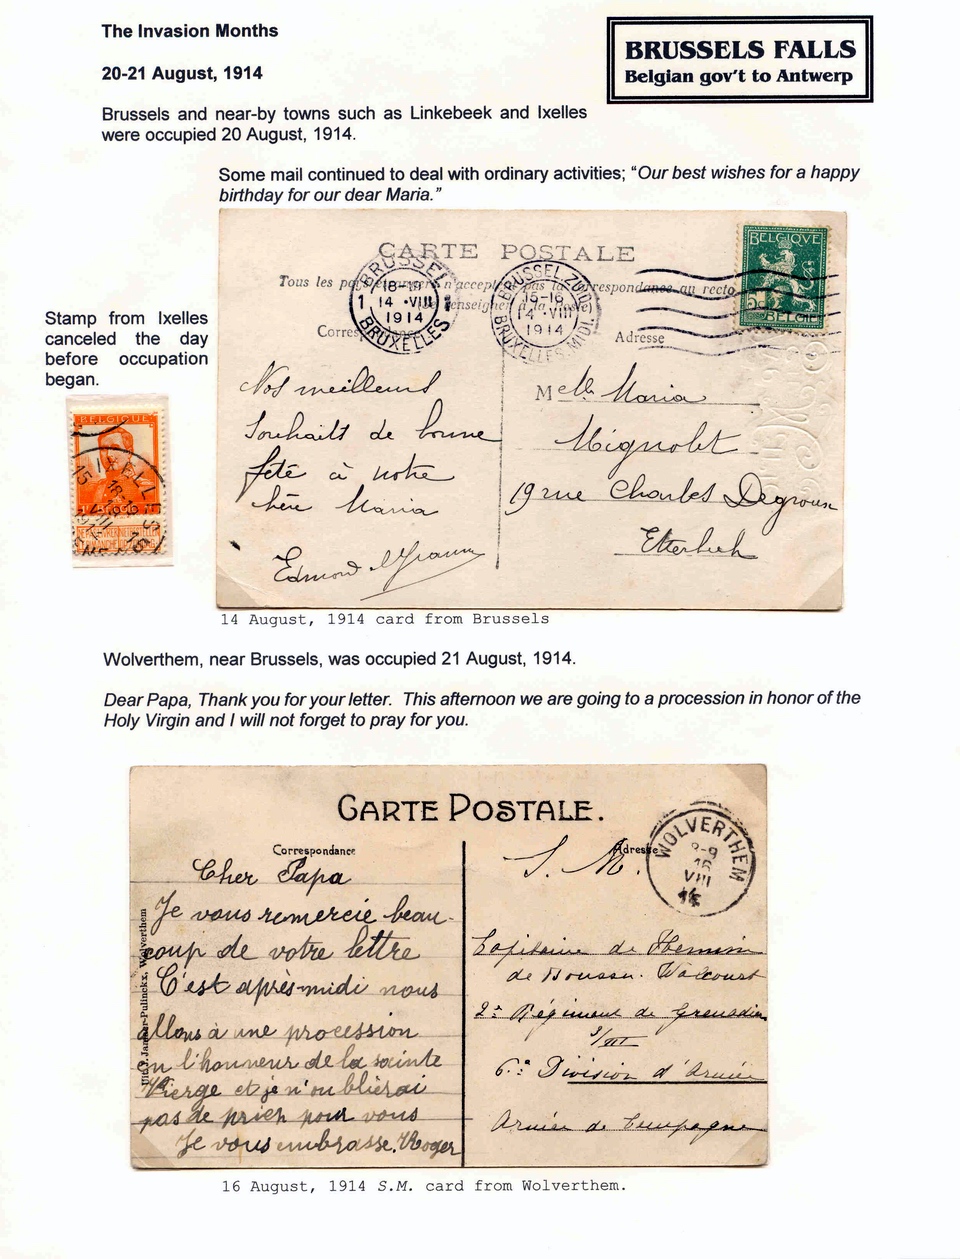 The Invasion Months
20-21 August, 1914
BRUSSELS FALLS
Belgian gov't to Antwerp
Brussels and near-by towns such as Linkebeek and Ixelles
were occupied 20 August, 1914.
Some mail continued to deal with ordinary activities; "Our best wishes for a happy
birthday for our dear Maria."
Stamp from Ixelles
canceled the day
before occupation
began.
BELGIQUE
IXELLES
CARTE POSTALE
Tous les
Adresse
BRUSSEL
14 VIII
1914
BRUXELLES
BRUSSEL ZUID
15-16
14 VIII
1914
BRUXELLES MIDI
BELGIQUE
5c
BELGIE
Nos meilleurs
souhaits de bonne
fête à notre
chère Maria
Edmond
Melle Maria
Mignolet
19 rue Charles Degroux
Etterbeek
14 August, 1914 card from Brussels
Wolverthem, near Brussels, was occupied 21 August, 1914.
Dear Papa, Thank you for your letter. This afternoon we are going to a procession in honor of the
Holy Virgin and I will not forget to pray for you.
CARTE POSTALE.
Correspondance
Adresse
WOLVERTHEM
8-9
16
VIII
Cher Papa
Je vous remercie beau-
coup de votre lettre
C'est après-midi nous
allons à une procession
en l'honneur de la sainte
Vierge et je n'oublierai
pas de prier pour vous
Je vous embrasse. Roger
S. M.
Capitaine de
de Walcourt
2e Régiment de Grenadier
3/III
6e Division d'Armée
Armée de Campagne
16 August, 1914 S.M. card from Wolverthem.